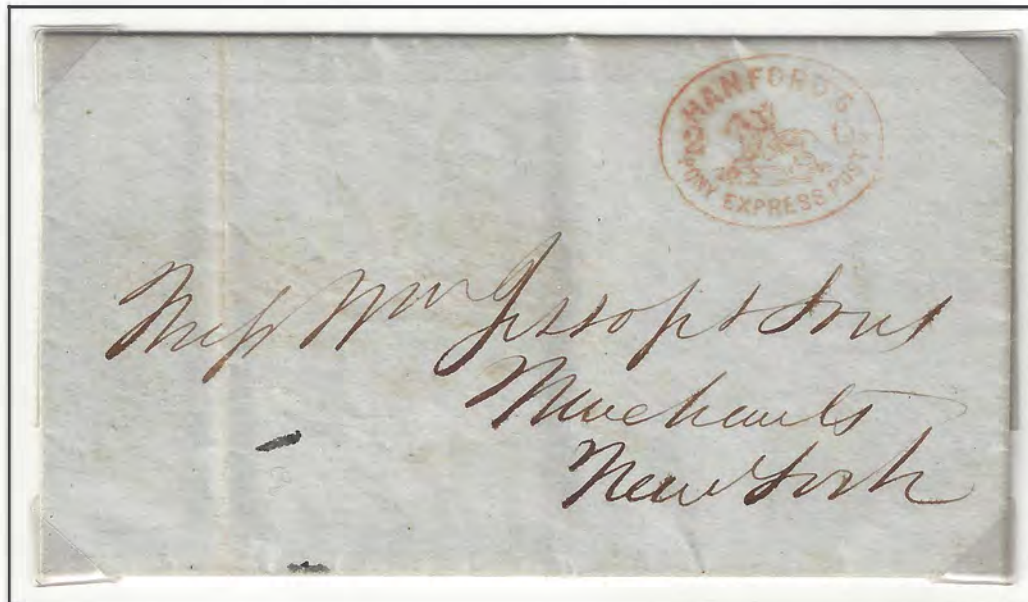 HANFORD'S
PONY EXPRESS POST
2 CTS
Mess Wm Jessop & Sons
Merchants
New York